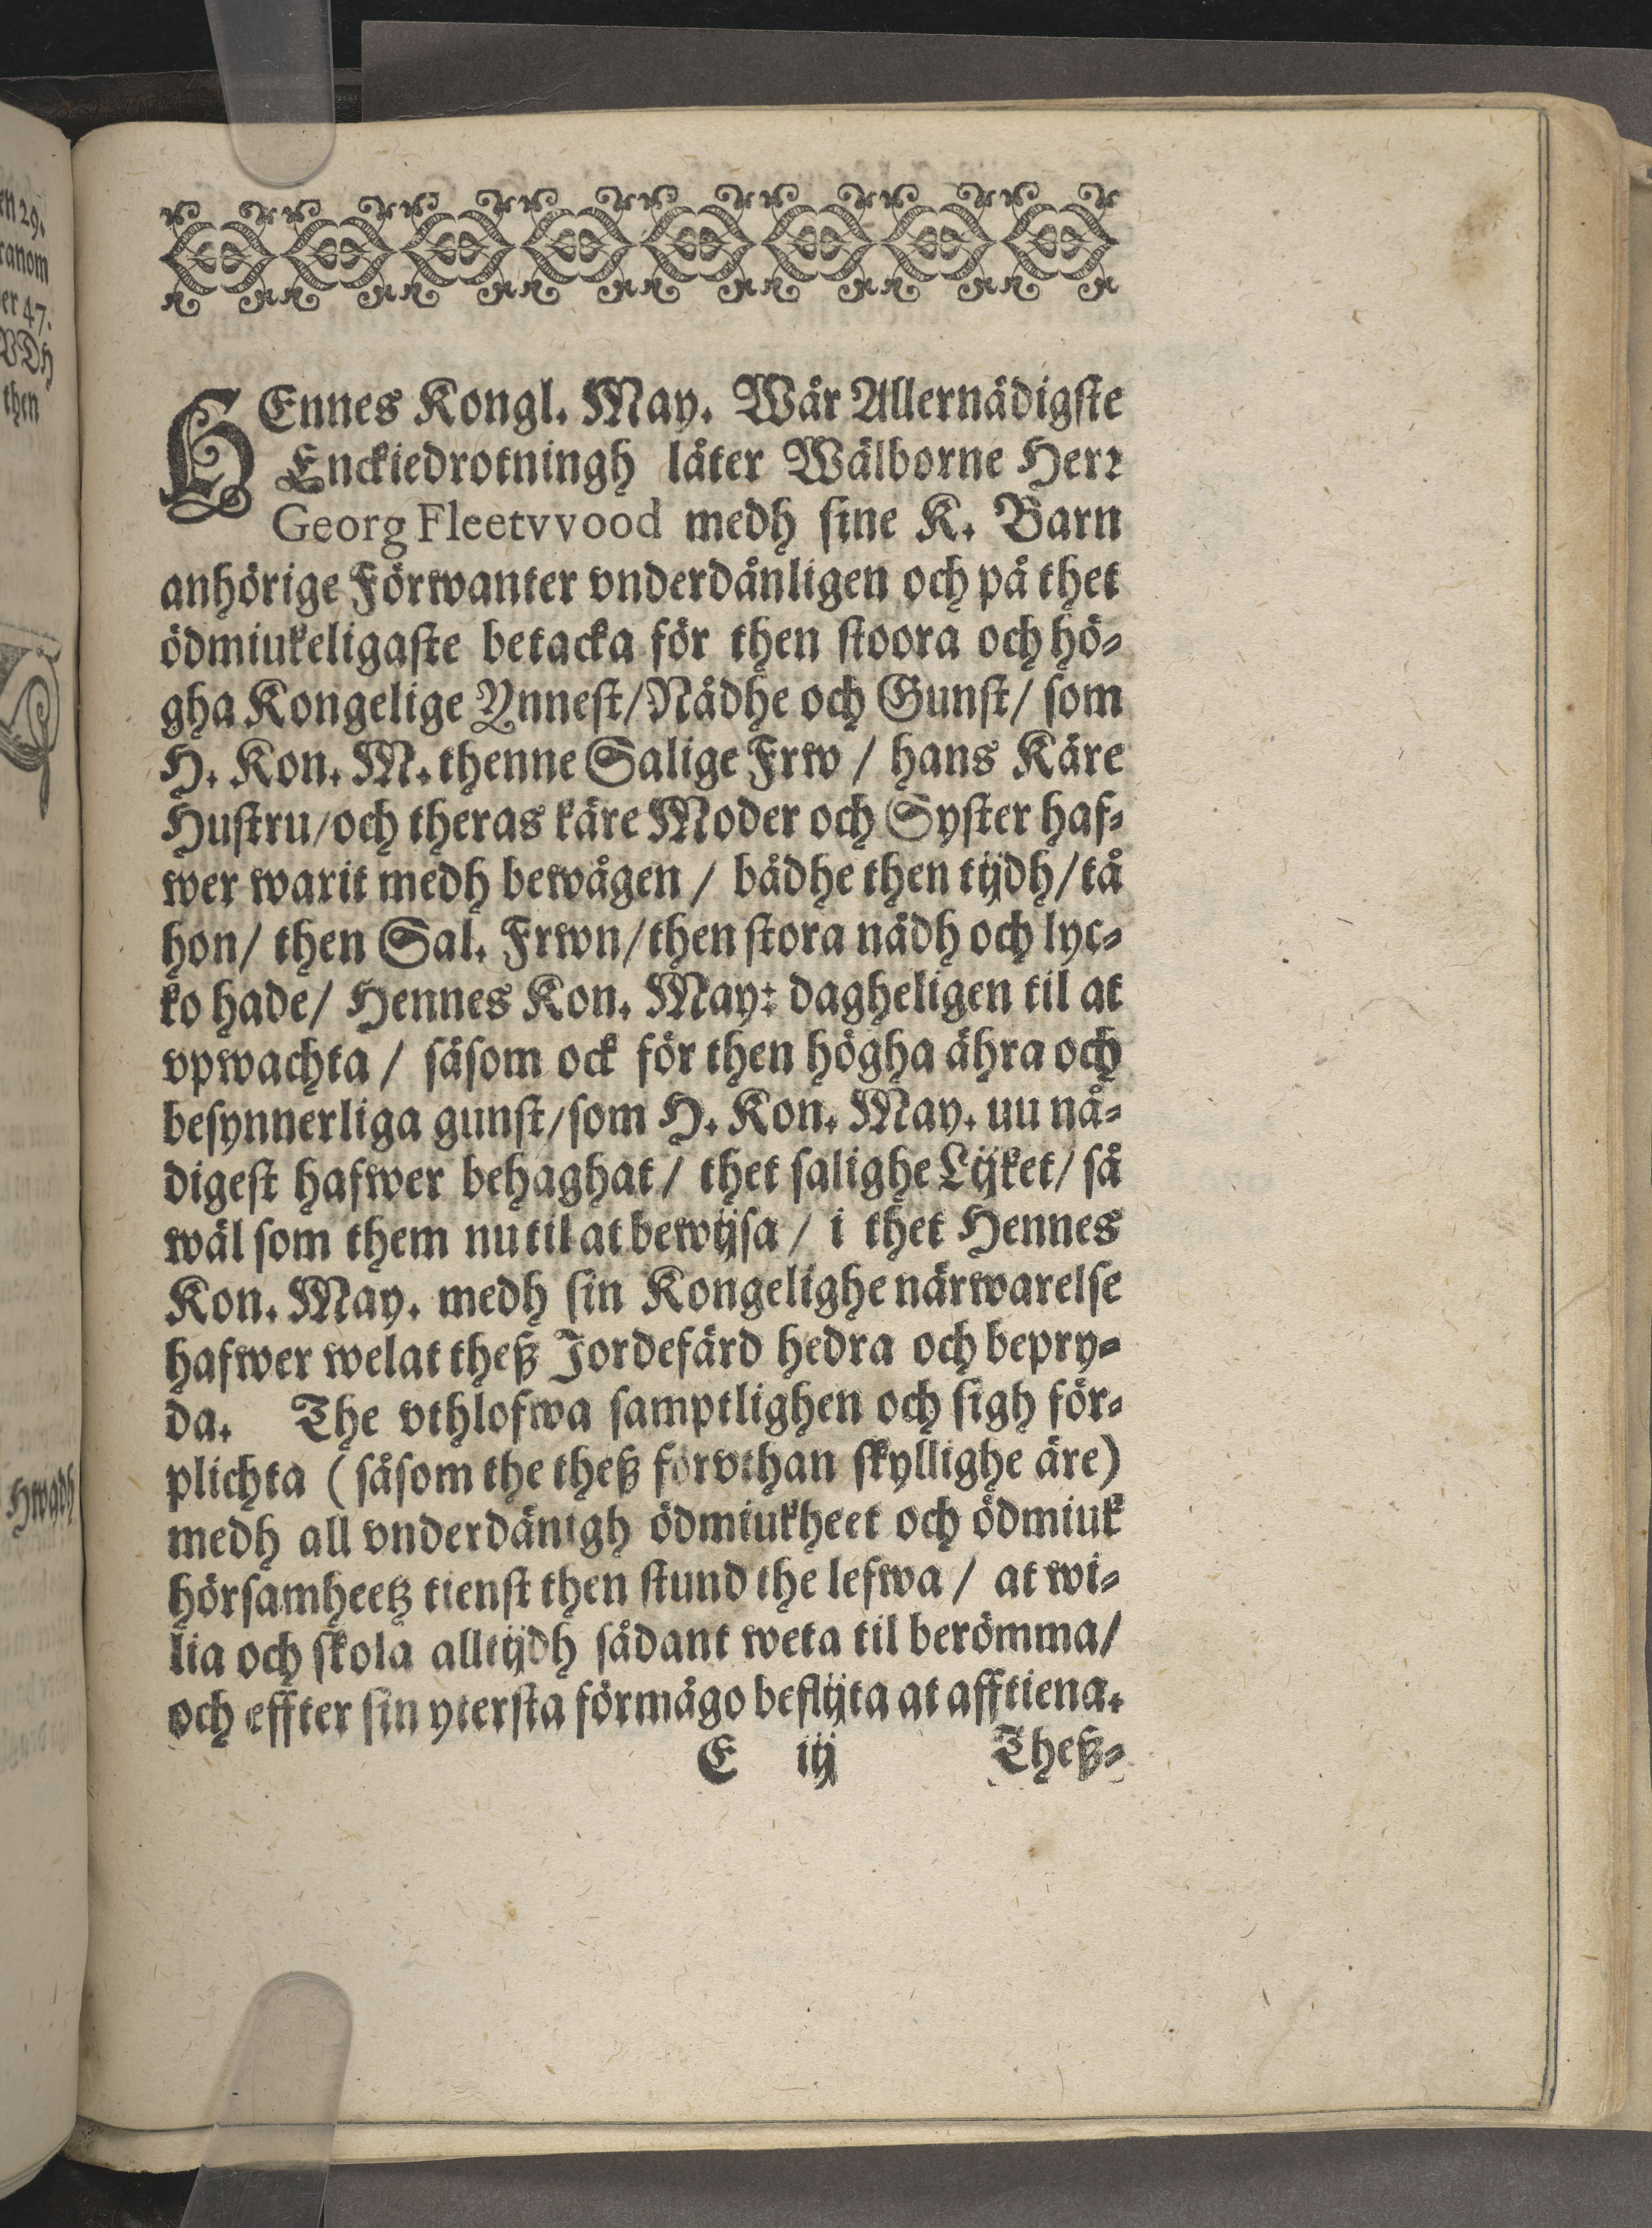 en 29.
ranom
er 47.
VDh
then
Hwadh
HEnnes Kongl. May. Wår Allernådigste
Enckiedrotningh låter Wälborne Herr
Georg Fleetvvood medh sine K. Barn
anhörige Förwanter vnderdånligen och på thet
ödmiukeligaste betacka för then stoora och hö-
gha Kongelige Ynnest/Nådhe och Gunst/ som
H. Kon. M. thenne Salige Frw / hans Käre
Hustru/och theras käre Moder och Syster haf-
wer warit medh bewågen / bådhe then tijdh/tå
hon/ then Sal. Frwn/then stora nådh och lyc-
ko hade/ Hennes Kon. May: dagheligen til at
vpwachta / såsom ock för then högha ähra och
besynnerliga gunst/som H. Kon. May. uu nå-
digest hafwer behaghat / thet salighe Lijket/ så
wäl som them nu til at bewijsa / i thet Hennes
Kon. May. medh sin Kongelighe närwarelse
hafwer welat theß Jordefärd hedra och bepry-
da. The vthlofwa samptlighen och sigh för-
plichta (såsom the theß forvthan skyllighe äre)
medh all vnderdänigh ödmiukheet och ödmiuk
hörsamheetz tienst then stund the lefwa / at wi-
lia och skola alltijdh sådant weta til berömma/
och effter sin ytersta förmågo beflijta at afftiena.
E iij Theß-